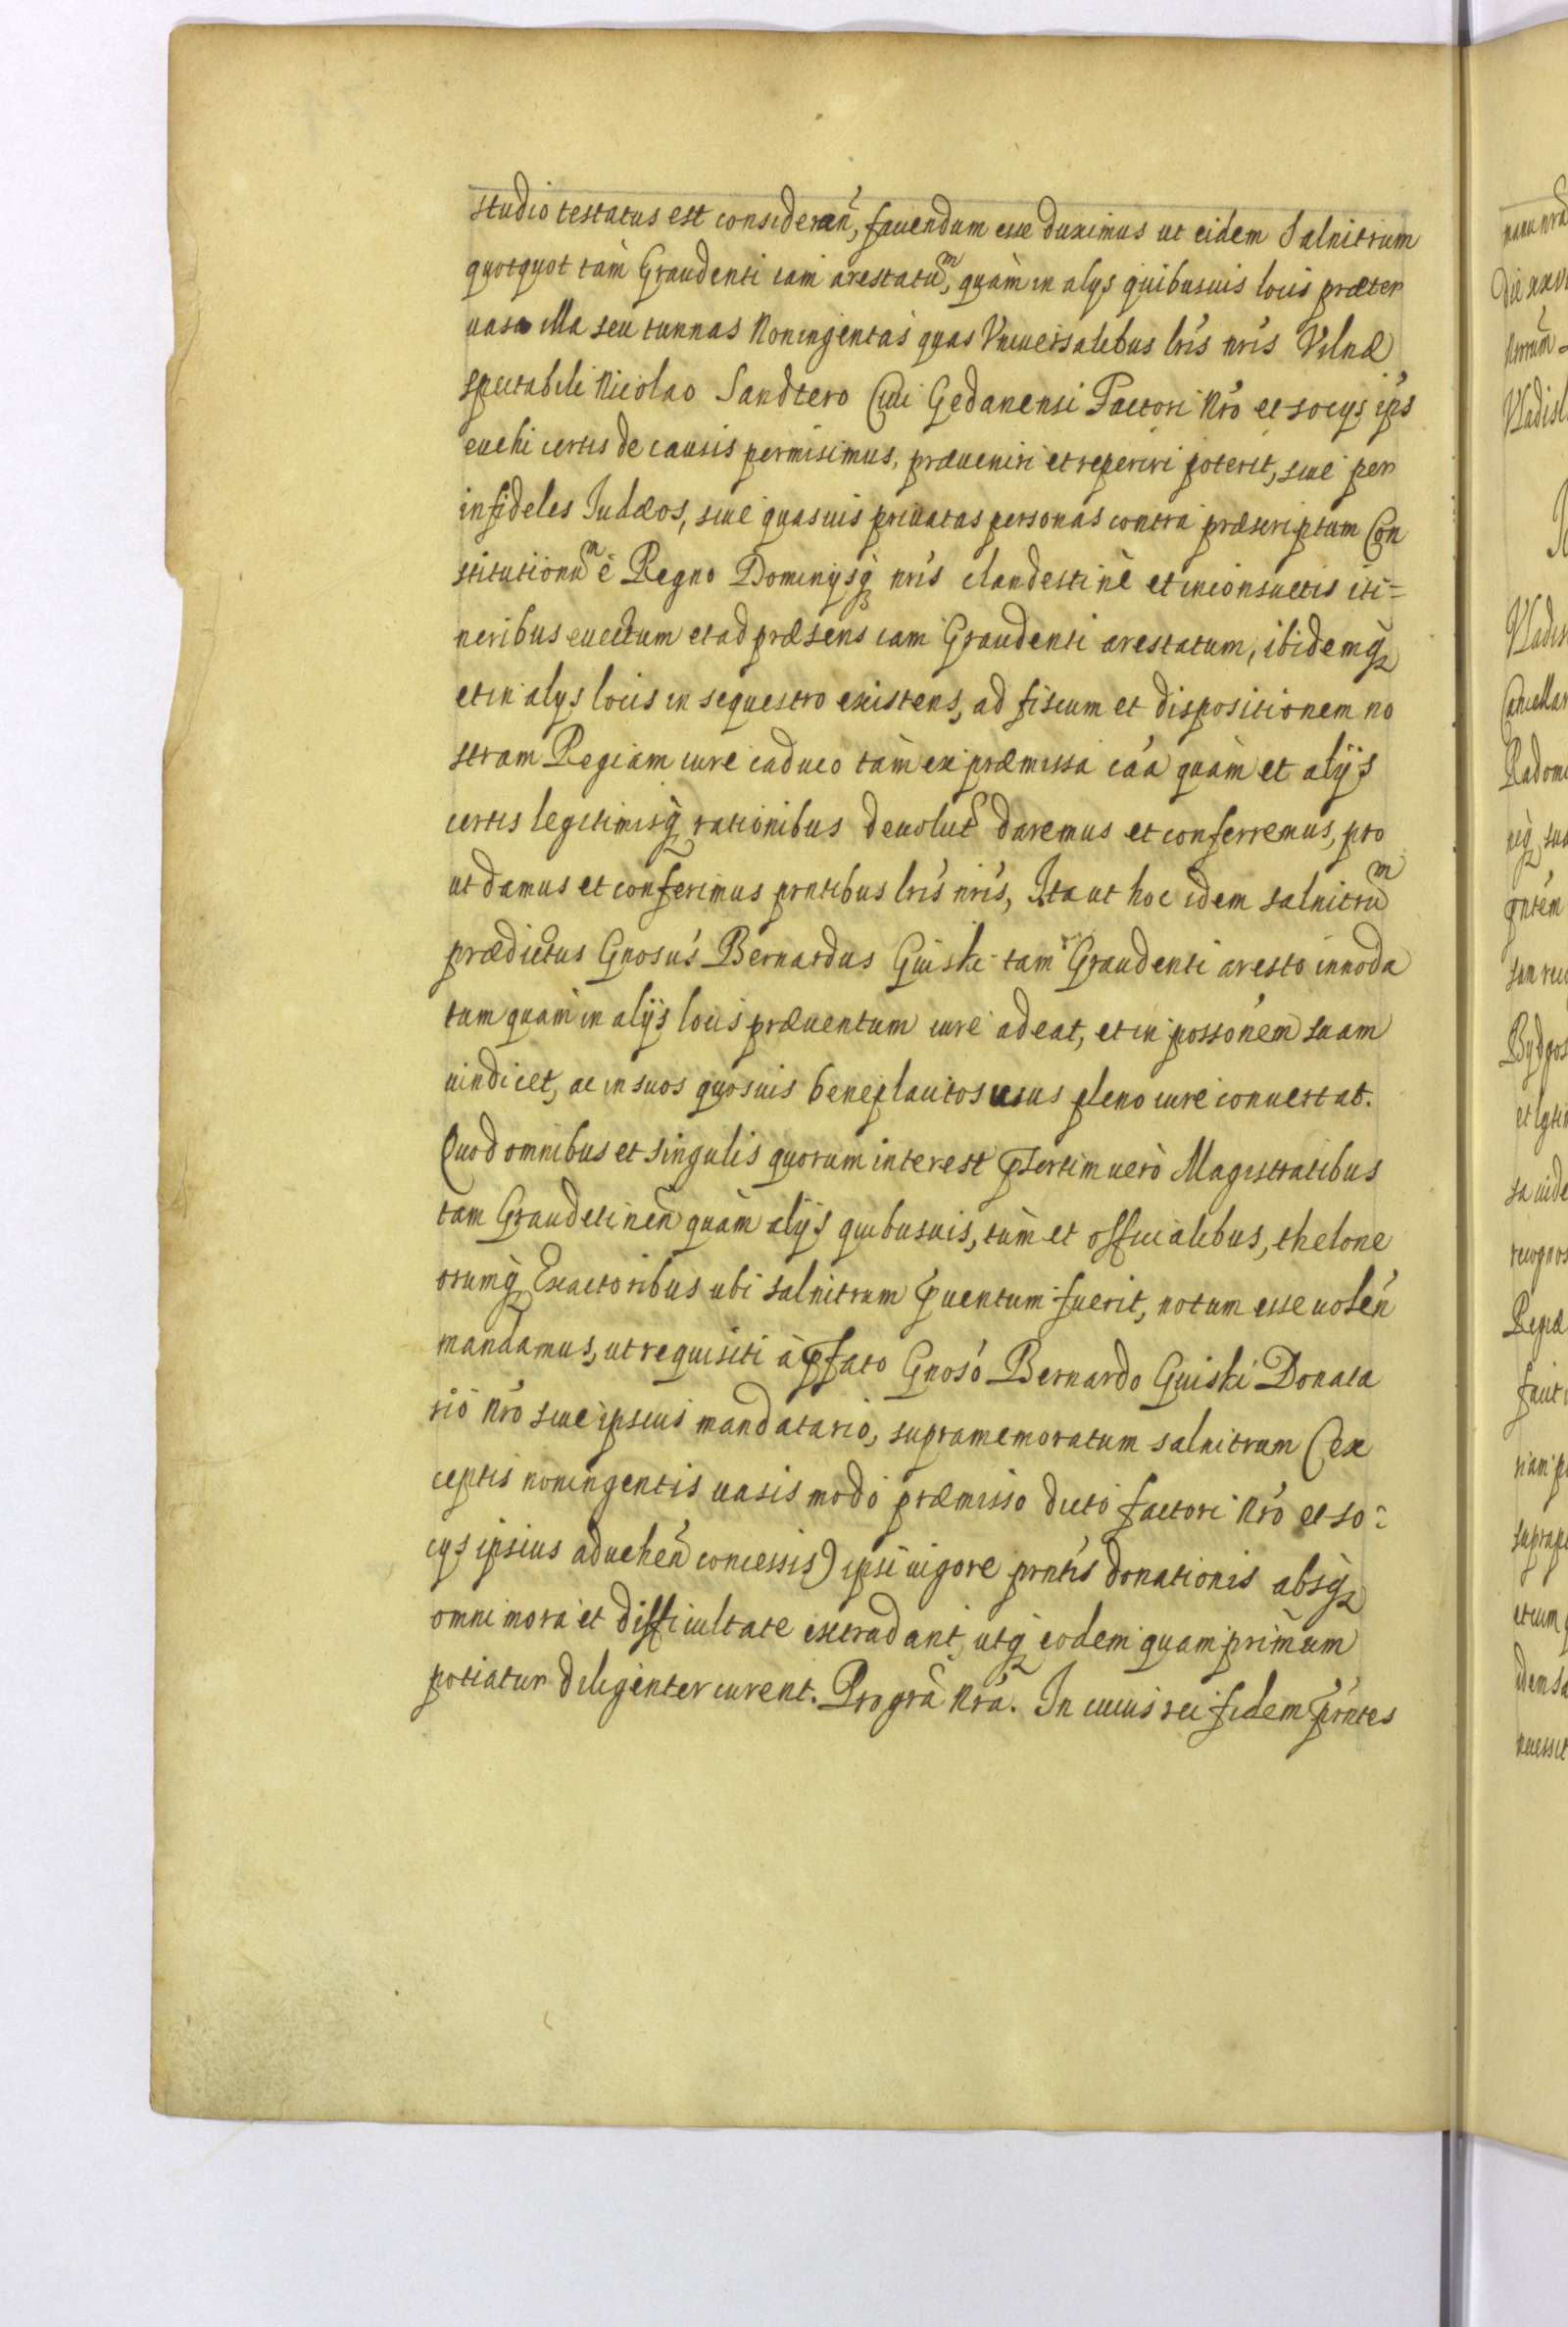 studio testatus est considerañ, fauendum esse duximus ut eidem Salnitrum
quotquot tàm Graudenti iam arestatũ, quàm in alys quibusuis locis præter
uasa illa seu tunnas Noningentas quas Vniuersalibus lr̃is nr̃is Vilnæ
spectabili Nicolao Sandtero Ciui Gedanensi Factori Nr̃o et socys ip̃s
euehi certis de causis permisimus, præueniri et reperiri poterit, siue per
infideles Iudæos, siue quasuis priuatas personas contra præscriptum Con
stitutionũ è Regno Dominysq̃ nr̃is clandestinè et inconsuetis iti=
neribus euectum et ad præsens iam Graudenti arestatum, ibidemq̃
et in alys locis in sequestro existens, ad fiscum et dispositionem no
stram Regiam iure caduco tàm ex præmissa cãa quàm et alijs
certis legitimisq̃ rationibus deuolut daremus et conferremus, pro
ut damus et conferimus prñtibus lr̃is nr̃is, Ita ut hoc idem salnitrũ
prædictus Gnosus Bernardus Guiski tam Graudenti aresto innoda
tum quam in alijs locis præuentum iure adeat, et in possonem suam
uindicet, ac in suos quosuis beneplacitos usus pleno iure conuertat.
Quod omnibus et singulis quorum interest p̃sertim uerò Magistratibus
tam Graudetineñ quàm alijs quibusuis, tùm et officialibus, thelone
orumq̃ Exactoribus ubi salnitrum p̃uentum fuerit, notum esse uoleñ
mandamus, ut requisiti à p̃fato Gnoso Bernardo Guiski Donata
rio Nr̃o siue ipsius mandatario, supramemoratum salnitrum (ex
ceptis noningentis uasis modo præmisso dicto factori Nr̃o et so=
cys ipsius adueheñ concessis) ipsi uigore prñtis donationis absq̃
omni mora et difficultate extradant, utq̃ eodem quamprimum
potiatur diligenter curent. Pro grã Nr̃a. In cuius rei fidem p̃rntes